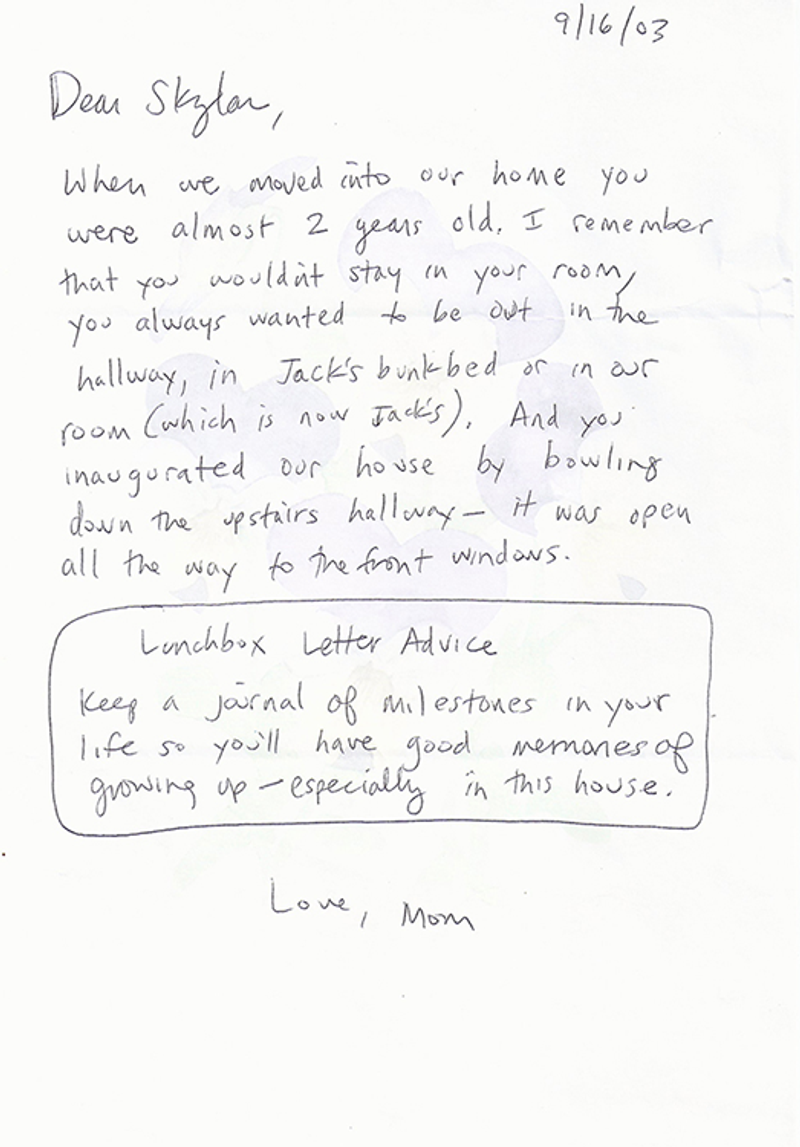 9/16/03
Dear Skylar,
When we moved into our home you
were almost 2 years old. I remember
that you wouldn't stay in your room,
you always wanted to be out in the
hallway, in Jack's bunkbed or in our
room (which is now Jack's). And you
inaugurated our house by bowling
down the upstairs hallway — it was open
all the way to the front windows.
Lunchbox Letter Advice
Keep a journal of milestones in your
life so you'll have good memories of
growing up — especially in this house.
Love, Mom